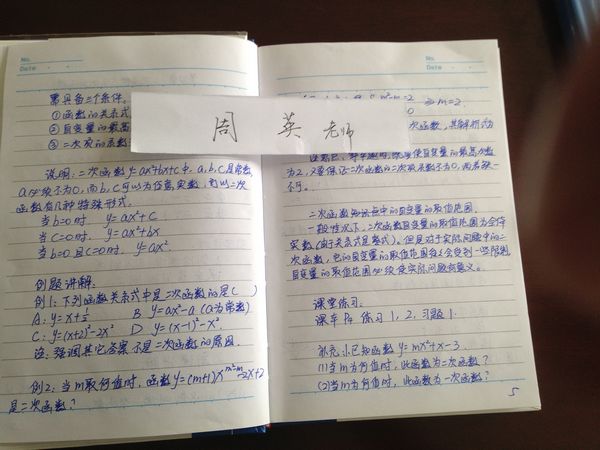 No.
Date
需具备三个条件。
①函数的关系式
②自变量的最高
③二次项的系数
说明：二次函数 y=ax²+bx+c中，a,b,c是常数，
a必须不为0，而b,c可以为任意实数，
函数有几种特殊形式。
当b=0时，y=ax²+c
当c=0时，y=ax²+bx
当b=0且c=0时，y=ax²
例题讲解：
例1：下列函数关系式中是二次函数的是（ ）
A：y=x+1/x B y=ax²-a (a为常数)
C：y=(x+2)²-2x² D y=(x-1)²-x²
注：强调其它答案不是二次函数的原因。
例2：当m取何值时，函数y=(m+1)x^(m²-m)-2x+2
是二次函数？
周英老师
No.
Date
m²-m=2 m=2
次函数，其解析式为
使自变量的最高次数
为2，又要保证二次函数的二次项系数不为0，两者缺一
不可。
二次函数知识点中的自变量的取值范围。
一般情况下，二次函数自变量的取值范围为全体
实数(由于关系式是整式)。但是对于实际问题中的二
次函数，它的自变量的取值范围往往会受到一些限制，
自变量的取值范围必须使实际问题有意义。
课堂练习：
课本 P4 练习1，2，习题1.
补充：已知函数 y=mx²+x-3.
(1)当m为何值时，此函数为二次函数？
(2)当m为何值时，此函数为一次函数？
5